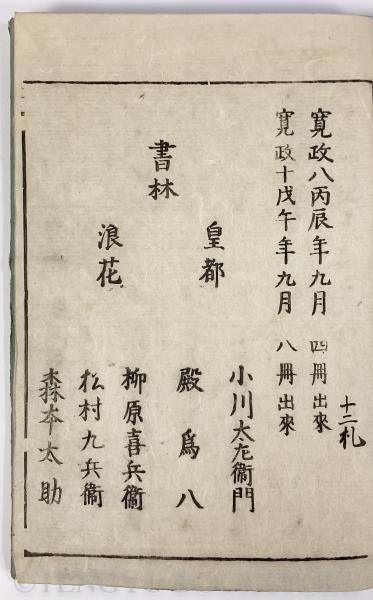 寛政八丙辰年九月 四冊出來
寛政十戊午年九月 八冊出來
十二札
書林
皇都
小川太左衞門
殿爲八
浪花
柳原喜兵衞
松村九兵衞
森本太助